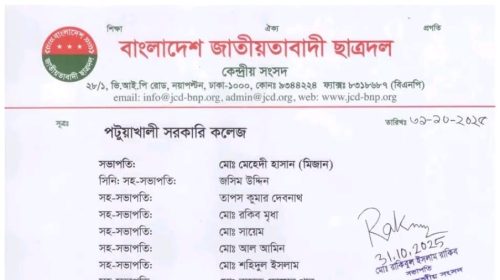 শিক্ষা ঐক্য প্রগতি
বাংলাদেশ জাতীয়তাবাদী ছাত্রদল
কেন্দ্রীয় সংসদ
২৮/১, ভি.আই.পি রোড, নয়াপল্টন, ঢাকা-১০০০, ফোনঃ ৯৩৪৪২২৪ ফ্যাক্সঃ ৮৩১৮৬৮৭ (বিএনপি)
email: info@jcd-bnp.org, admin@jcd.org, web: www.jcd-bnp.org
সূত্রঃ তারিখঃ ৩১-১০-২০২৫
পটুয়াখালী সরকারি কলেজ
সভাপতি: মোঃ মেহেদী হাসান (মিজান)
সিনি: সহ-সভাপতি: জসিম উদ্দিন
সহ-সভাপতি: তাপস কুমার দেবনাথ
সহ-সভাপতি: মোঃ রকিব মৃধা
সহ-সভাপতি: মোঃ সায়েম
সহ-সভাপতি: মোঃ আল আমিন
সহ-সভাপতি: মোঃ শহিদুল ইসলাম
31.10.2025
মোঃ রাকিবুল ইসলাম রাকিব
সভাপতি